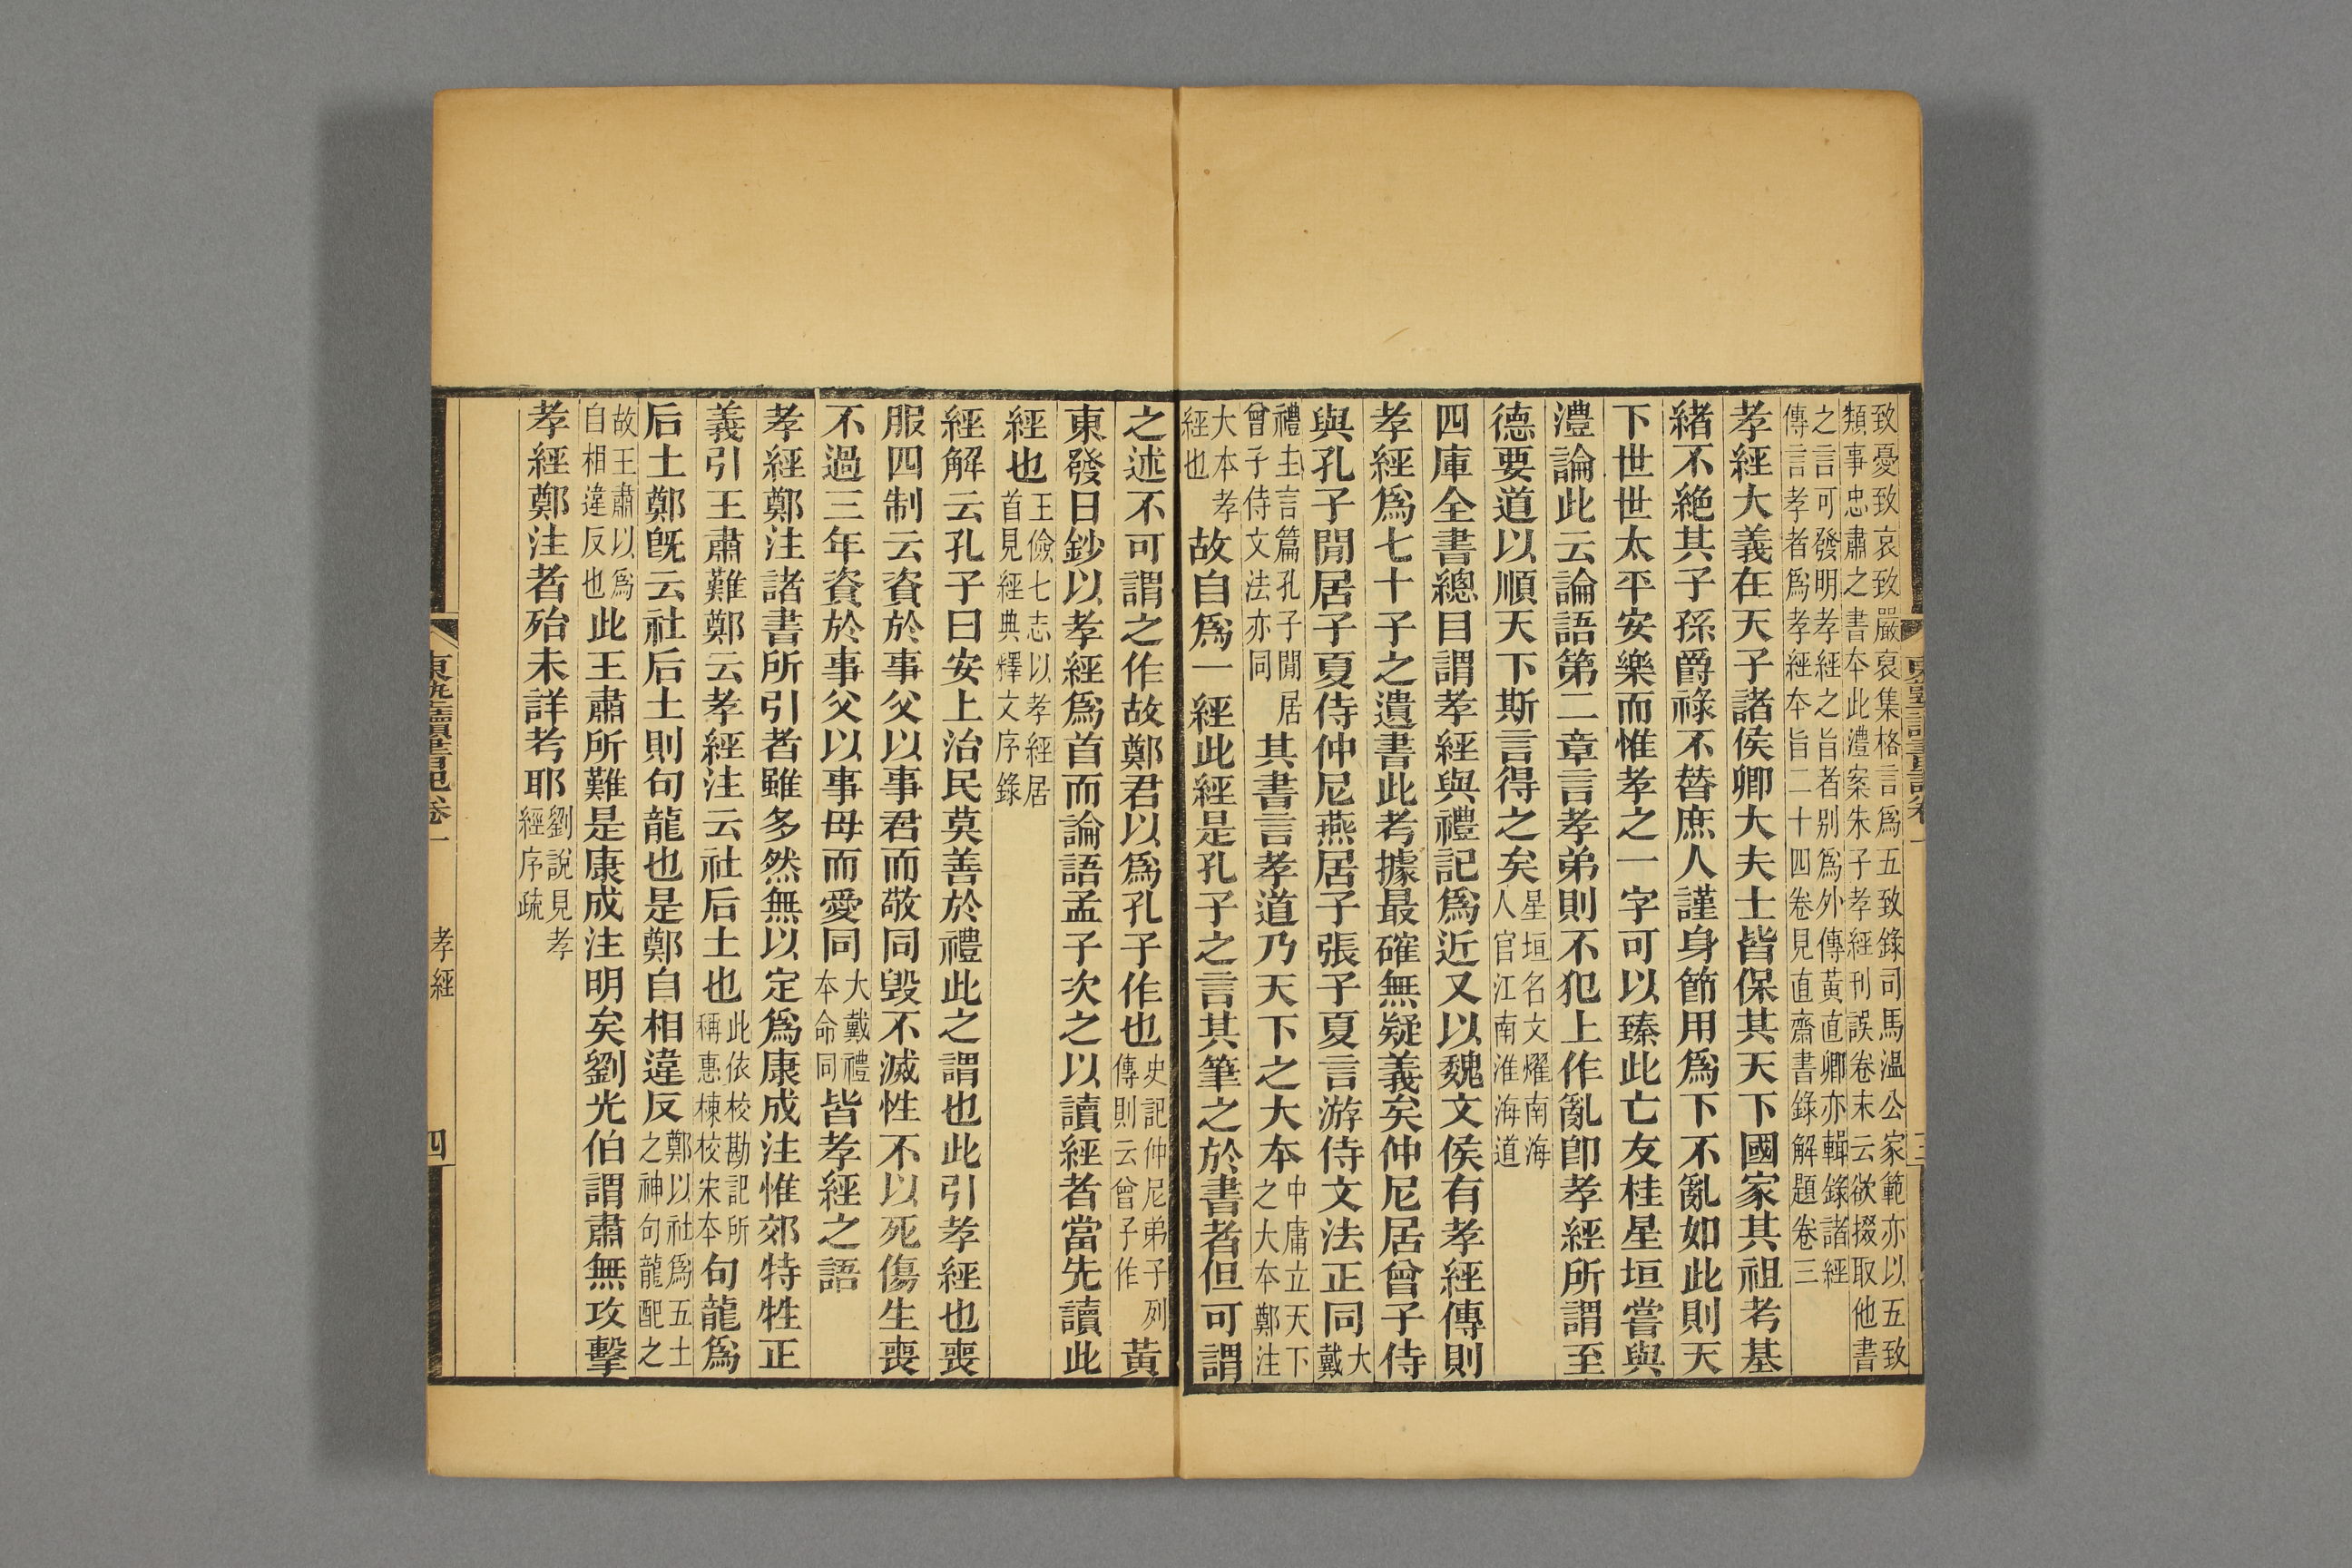 致憂致哀致嚴裒集格言爲五致錄司馬温公家範亦以五致
類事忠肅之書本此澧案朱子孝經刊誤卷末云欲掇取他書
之言可發明孝經之旨者别爲外傳黃直卿亦輯錄諸經
傳言孝者爲孝經本旨二十四卷見直齋書錄解題卷三
孝經大義在天子諸侯卿大夫士皆保其天下國家其祖考基
緒不絶其子孫爵祿不替庶人謹身節用爲下不亂如此則天
下世世太平安樂而惟孝之一字可以臻此亡友桂星垣嘗與
澧論此云論語第二章言孝弟則不犯上作亂卽孝經所謂至
德要道以順天下斯言得之矣星垣名文燿南海人官江南淮海道
四庫全書總目謂孝經與禮記爲近又以魏文侯有孝經傳則
孝經爲七十子之遺書此考據最確無疑義矣仲尼居曾子侍
與孔子閒居子夏侍仲尼燕居子張子夏言游侍文法正同大戴
禮主言篇孔子閒居曾子侍文法亦同其書言孝道乃天下之大本中庸立天下之大本鄭注
大本孝經也故自爲一經此經是孔子之言其筆之於書者但可謂
之述不可謂之作故鄭君以爲孔子作也史記仲尼弟子列傳則云曾子作黃
東發日鈔以孝經爲首而論語孟子次之以讀經者當先讀此
經也王儉七志以孝經居首見經典釋文序錄
經解云孔子曰安上治民莫善於禮此之謂也此引孝經也喪
服四制云資於事父以事君而敬同毁不滅性不以死傷生喪
不過三年資於事父以事母而愛同大戴禮本命同皆孝經之語
孝經鄭注諸書所引者雖多然無以定爲康成注惟郊特牲正
義引王肅難鄭云孝經注云社后土也此依校勘記所稱惠棟校宋本句龍爲
后土鄭既云社后土則句龍也是鄭自相違反鄭以社爲五土之神句龍配之
故王肅以爲自相違反也此王肅所難是康成注明矣劉光伯謂肅無攻擊
孝經鄭注者殆未詳考耶劉說見孝經序疏
東塾讀書記卷一
孝經
四